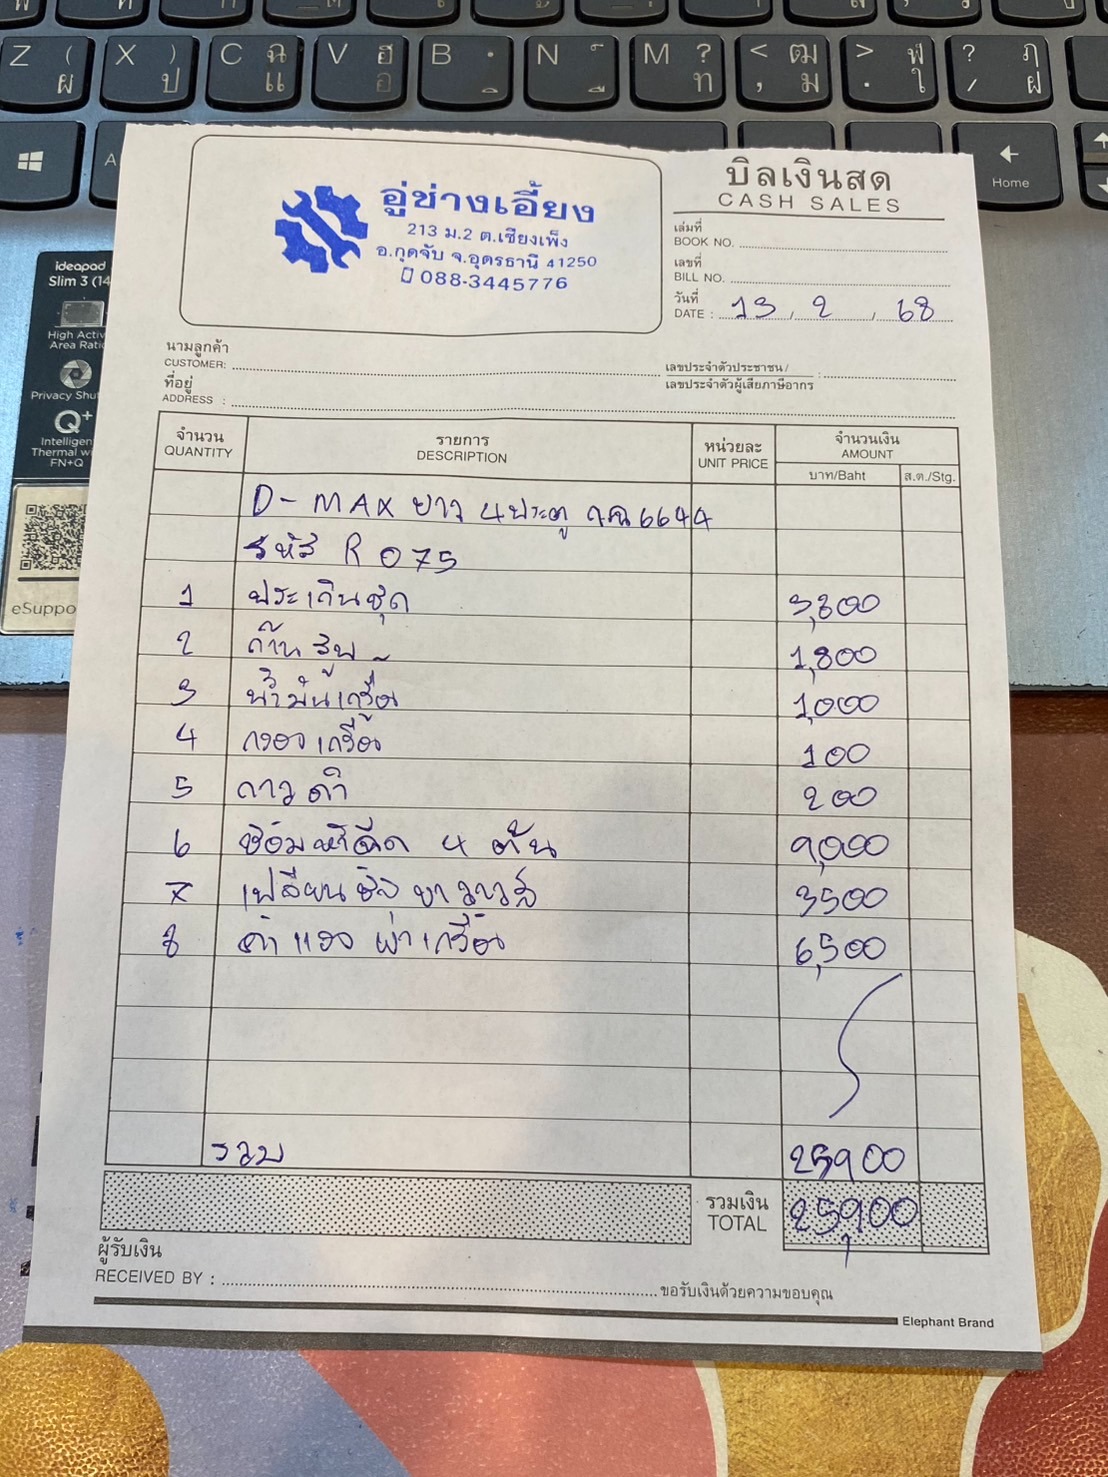 Z ( ผ
X ) ป
C ฉ แ
V ฮ อ
B
N
M ? ท
< ฒ , ม
> ฬ . ใ
? ฦ / ฝ
Home
ideapad
Slim 3 (14
High Activ
Area Ratio
Privacy Shu
Q+
Intelligen
Thermal w
FN+Q
eSuppo
อู่ช่างเอี้ยง
213 ม.2 ต.เชียงเพ็ง
อ.กุดจับ จ.อุดรธานี 41250
088-3445776
บิลเงินสด
CASH SALES
เล่มที่
BOOK NO.
เลขที่
BILL NO.
วันที่
DATE : 13, 2, 68
นามลูกค้า
CUSTOMER:
เลขประจำตัวประชาชน/ :
เลขประจำตัวผู้เสียภาษีอากร
ที่อยู่
ADDRESS :
จำนวน รายการ หน่วยละ จำนวนเงิน
QUANTITY DESCRIPTION UNIT PRICE AMOUNT
บาท/Baht ส.ต./Stg.
D-MAX ยาว 4ประตู 6644
รหัส R075
1 ประเก็นชุด 3,800
2 ก้านสูบ 1,800
3 น้ำมันเครื่อง 1,000
4 กรองเครื่อง 100
5 กาวดำ 200
6 ซ่อมหัวฉีด 4 ตัว 9,000
7 เปลี่ยนซีลยาวาวล์ 3500
8 ค่าแรง ผ่าเครื่อง 6,500
รวม 25900
รวมเงิน
TOTAL 25,900
ผู้รับเงิน
RECEIVED BY : ขอรับเงินด้วยความขอบคุณ
Elephant Brand